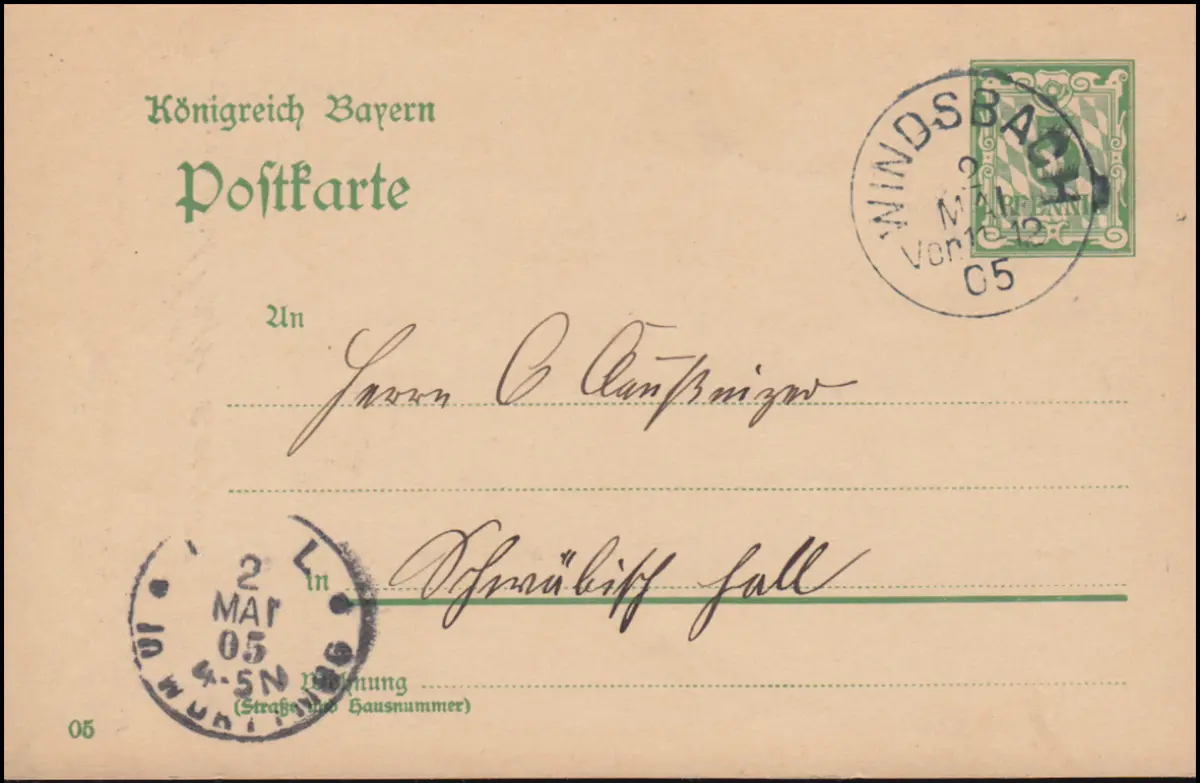 Königreich Bayern
Postkarte
WINDSBACH
2
MAI
Vor 11-12
05
PFENNIG
An
Herrn C Claußnizer
in
Schwäbisch Hall
2
MAI
05
4-5N
Wohnung
(Straße und Hausnummer)
05